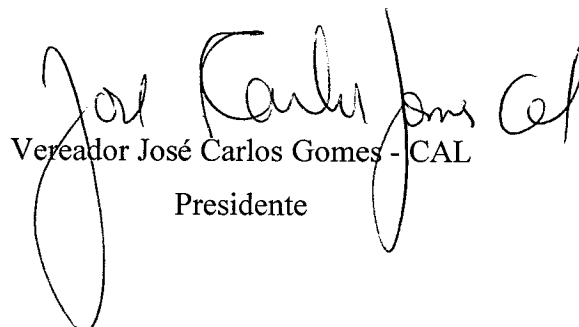 José Carlos Gomes Cal
Vereador José Carlos Gomes - CAL
Presidente